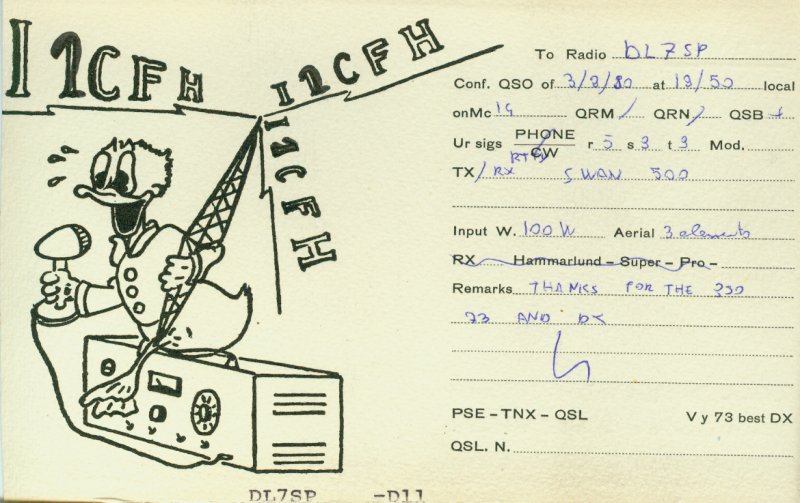 I1CFH
I1CFH
I1CFH
To Radio DL7SP
Conf. QSO of 3/2/80 at 13/50 local
on Mc 14 QRM / QRN / QSB +
Ur sigs PHONE r 5 s 3 t 3 Mod.
CW RTTY
TX / RX SWAN 500
Input W. 100 W Aerial 3 elements
RX Hammarlund - Super - Pro -
Remarks THANKS FOR THE QSO
73 AND DX
PSE - TNX - QSL Vy 73 best DX
QSL. N.
DL7SP -D11